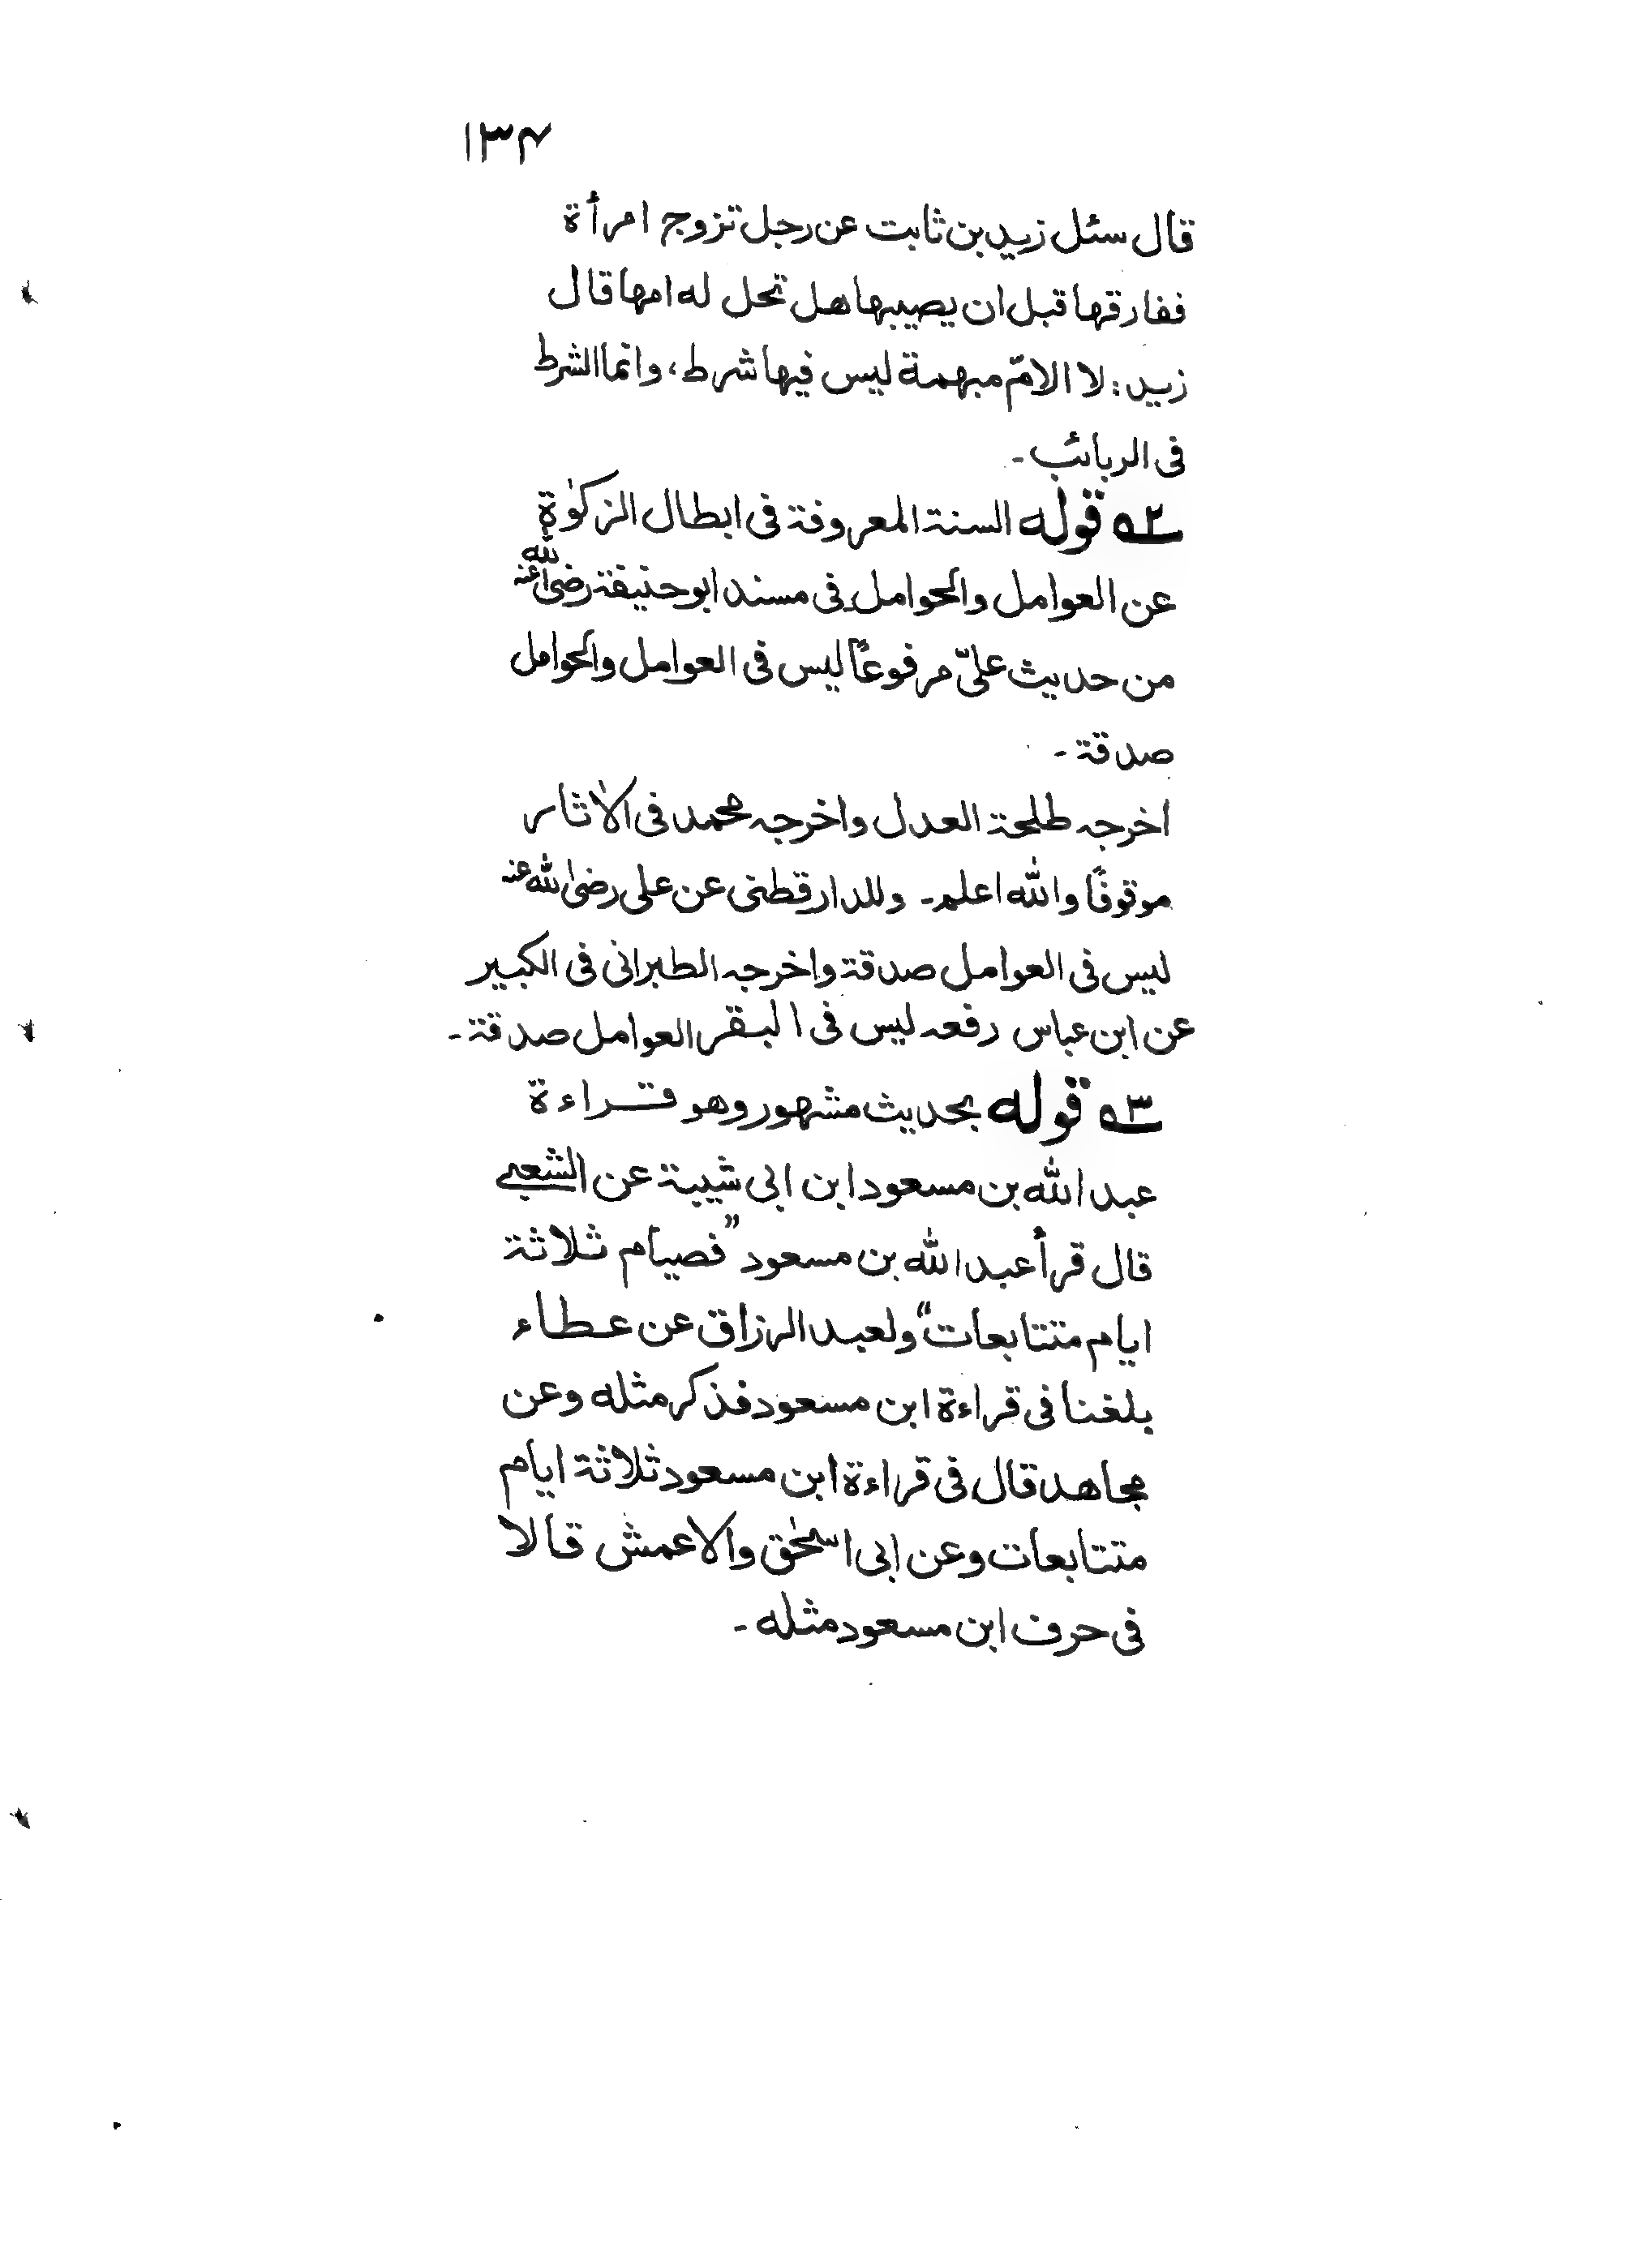 ۱۳۴
قال سئل زيد بن ثابت عن رجل تزوج امرأة
ففارقها قبل ان يصيبها هل تحل له امها قال
زيد: لا الامّ مبهمة ليس فيها شرط، وانما الشرط
فى الربائب۔
۵۲ قوله السنة المعروفة فى ابطال الزكوٰة
عن العوامل والحوامل فى مسند ابو حنيفة رضى الله عنه
من حديث علىّ مرفوعًا ليس فى العوامل والحوامل
صدقة۔
اخرجه طلحة العدل واخرجه محمد فى الاٰثار
موقوفًا والله اعلم۔ وللدارقطنى عن على رضى الله عنه
ليس فى العوامل صدقة واخرجه الطبرانى فى الكبير
عن ابن عباس رفعه ليس فى البقر العوامل صدقة۔
۵۳ قوله بحديث مشهور وهو قراءة
عبد الله بن مسعود ابن ابى شيبة عن الشعبے
قال قرأ عبد الله بن مسعود ”فصيام ثلاثة
ايام متتابعات“ ولعبد الرزاق عن عطاء
بلغنا فى قراءة ابن مسعود فذكر مثله وعن
مجاهد قال فى قراءة ابن مسعود ثلاثة ايام
متتابعات وعن ابى اسحٰق والاعمش قالا
فى حرف ابن مسعود مثله۔